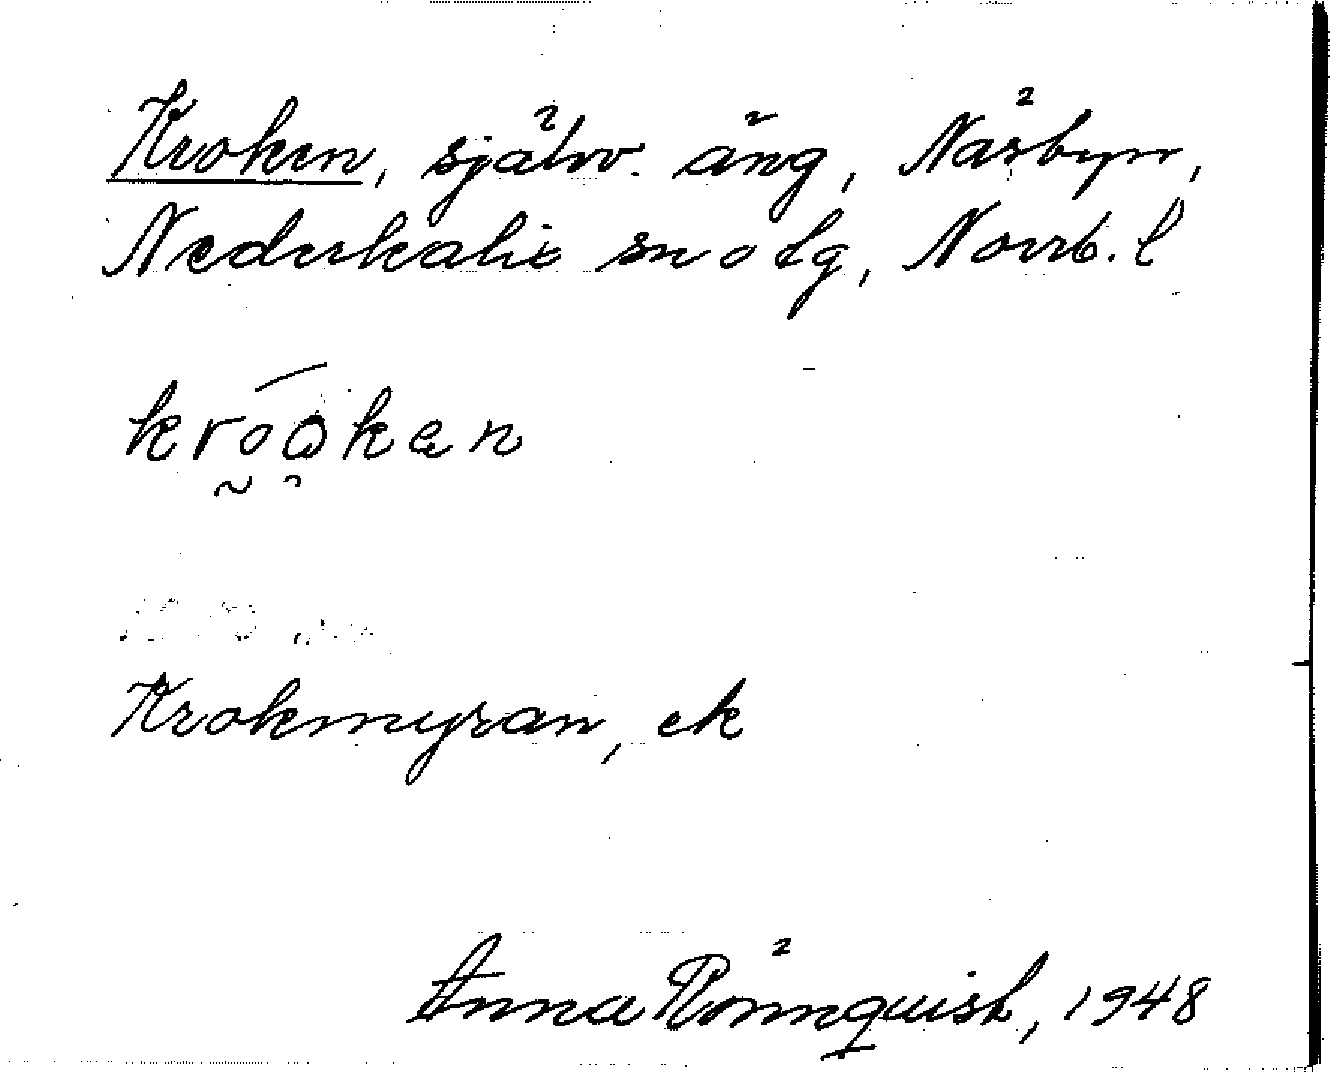 Kroken, självv. äng, Näsbyn,
Nederkalix sn o tg, Norrb. l
kroåken
Krokmyran, ek
Anna Rönnquist, 1948